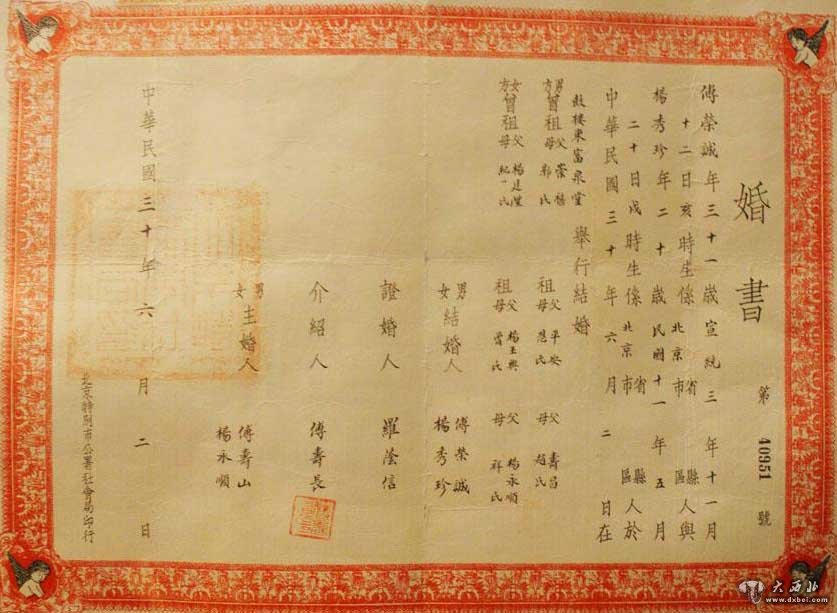 婚書
第 40951 號
傅榮誠年三十一歲宣統三年十一月
十二日亥時生係北京省市縣區人與
楊秀珍年二十歲民國十一年五月
二十日戌時生係北京省市縣區人於
中華民國三十年六月二日在
鼓樓東富泉堂舉行結婚
男方曾祖父崇禧母郭氏 祖父平安母慈氏 父壽昌母趙氏
女方曾祖父楊廷母紀氏 祖父楊玉興母曹氏 父楊永順母祥氏
男女結婚人 傅榮誠 楊秀珍
證婚人 羅蔭信
介紹人 傅壽長
男女主婚人 傅壽山 楊永順
中華民國三十年六月二日
北京特別市公署社會局印行
大西北
www.dxbei.com